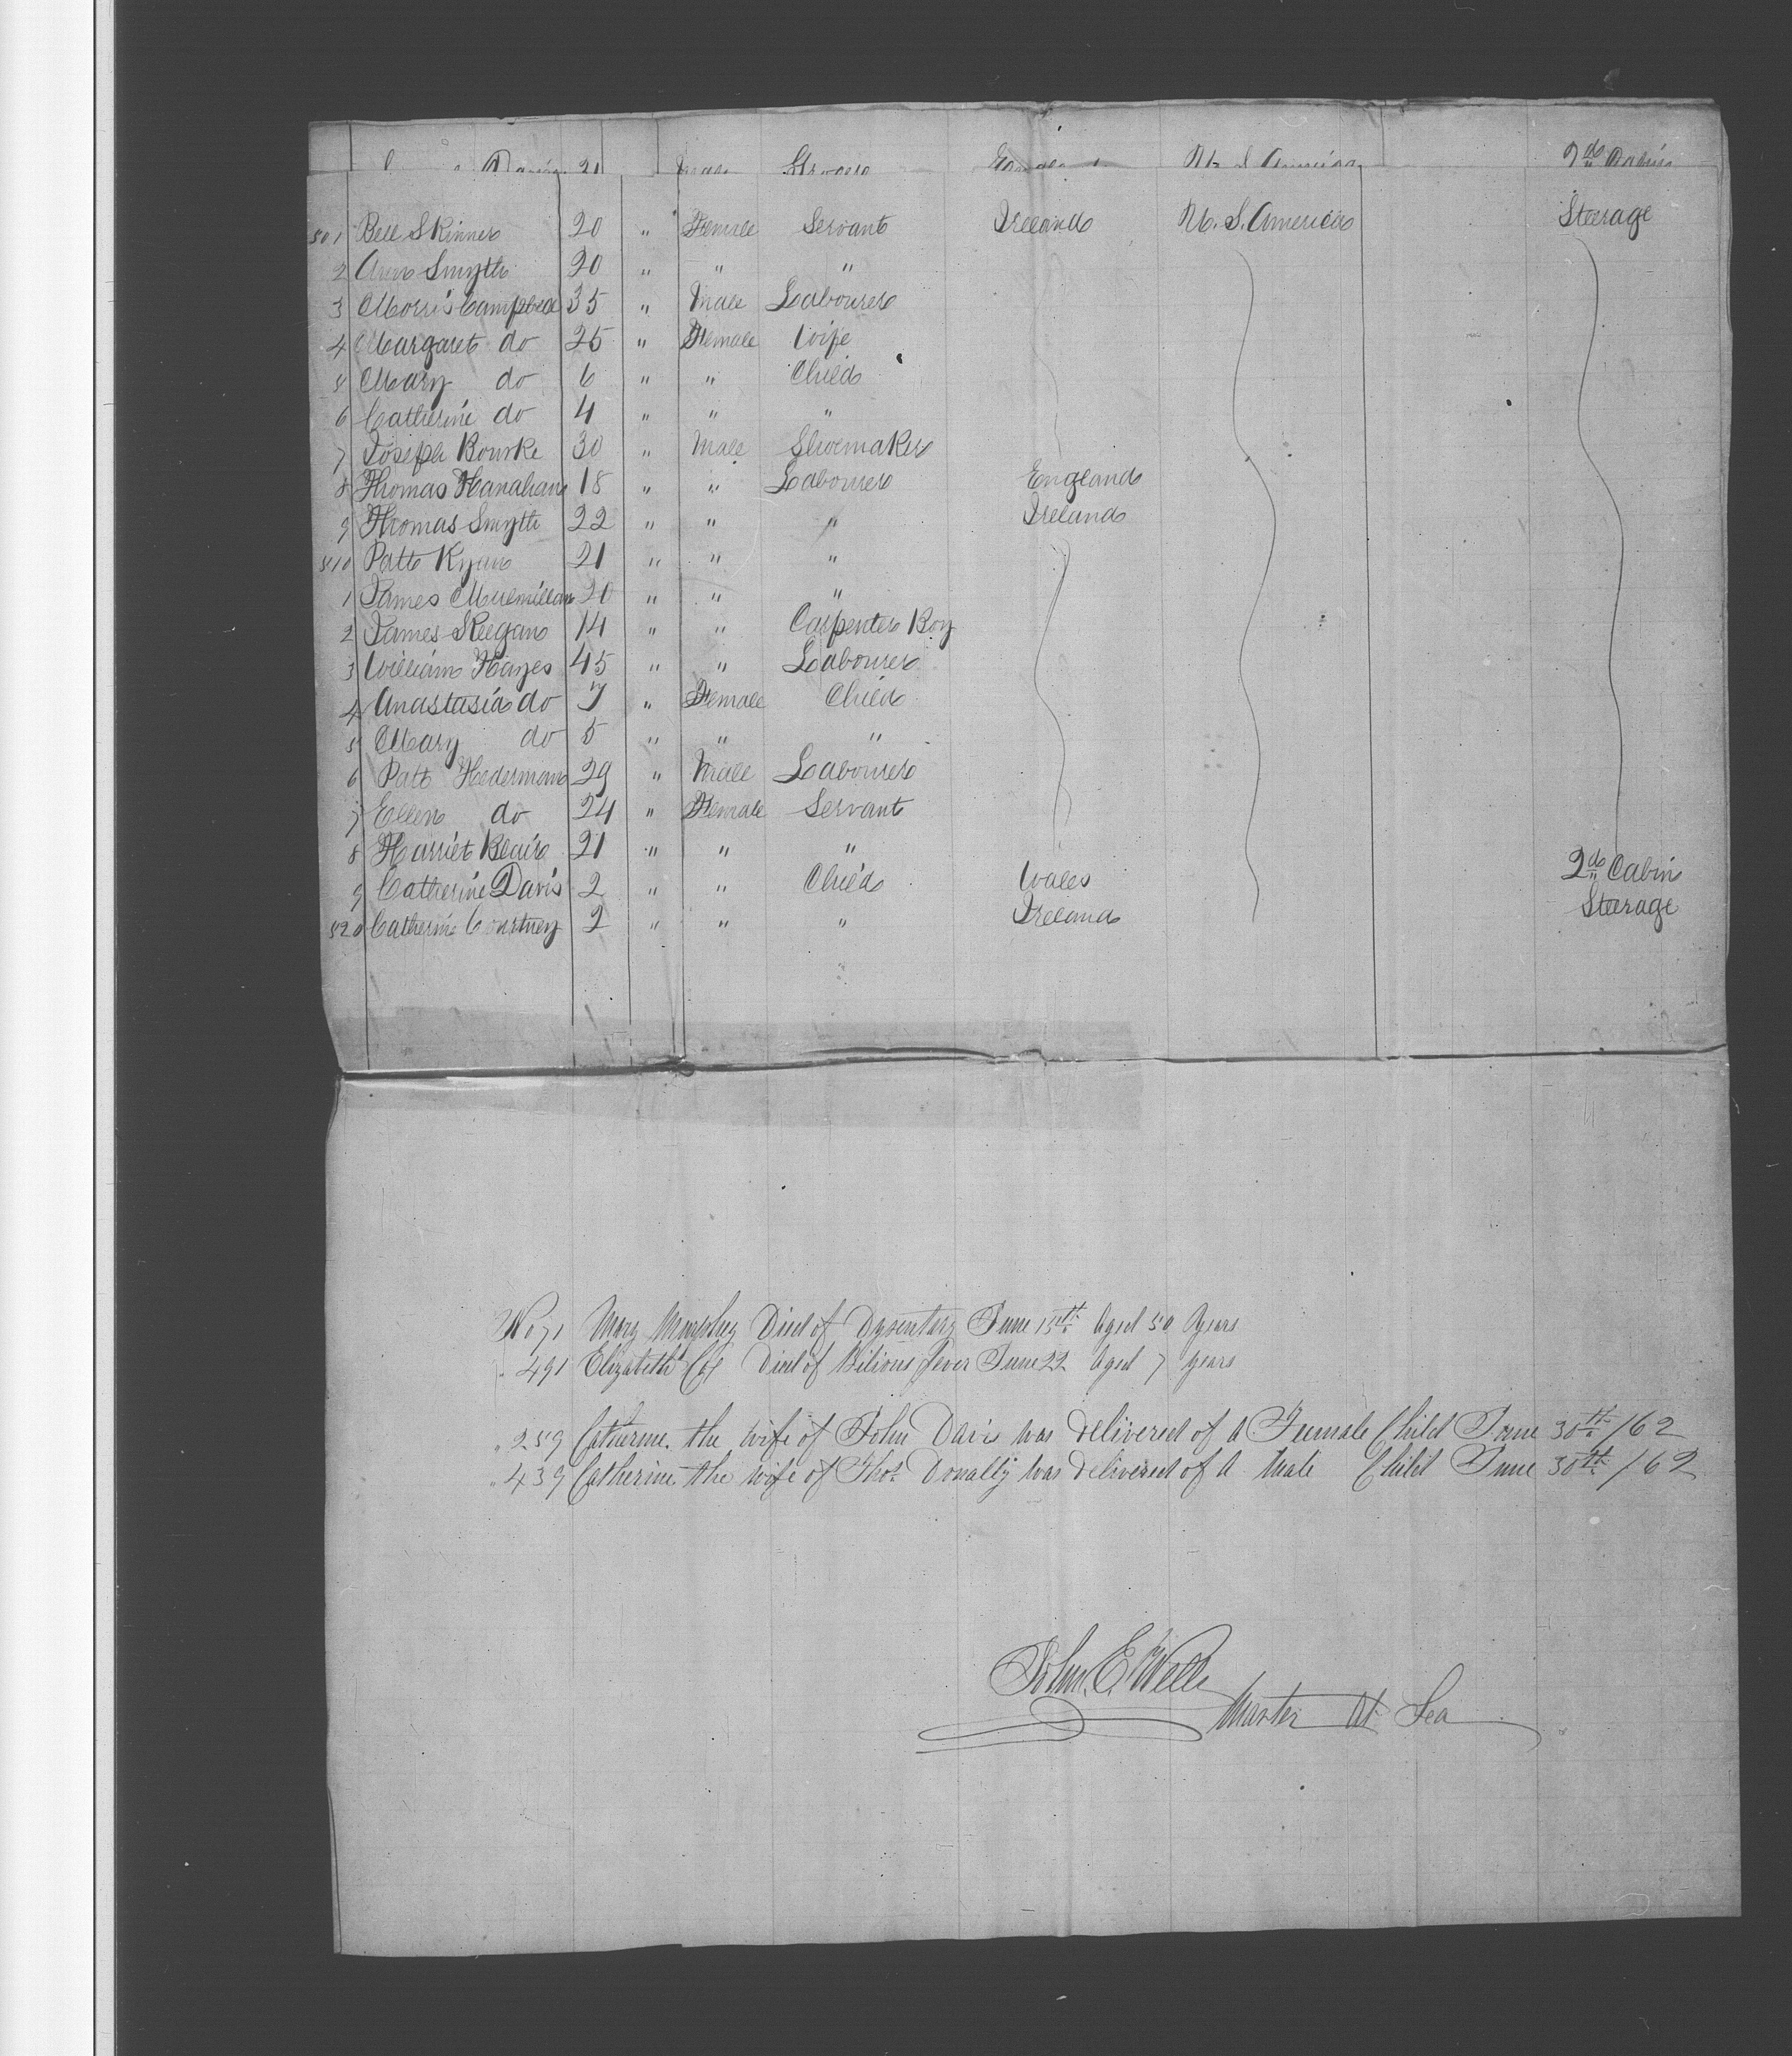 Davis 21 Male Grocer England U. S. America 2nd Cabin
501 Bell Skinner 20 " Female Servant Ireland U. S. America Steerage
2 Ann Smyth 20 " " "
3 Morris Campbell 35 " Male Labourer
4 Margaret do 25 " Female Wife
5 Mary do 6 " " Child
6 Catherine do 4 " " "
7 Joseph Bourke 30 " Male Shoemaker
8 Thomas Hanahan 18 " " Labourer England
9 Thomas Smyth 22 " " " Ireland
510 Patt Ryan 21 " " "
1 James Mcemillan 20 " " "
2 James Keegan 14 " " Carpenter Boy
3 William Hayes 45 " " Labourer
4 Anastasia do 7 " Female Child
5 Mary do 5 " " "
6 Patt Hederman 29 " Male Labourer
7 Ellen do 24 " Female Servant
8 Harriet Blair 21 " " "
9 Catherine Davis 2 " " Child Wales 2nd Cabin
520 Catherine Courtney 2 " " " Ireland Steerage
No 71 Mary Murphy Died of Dysentary June 15th Aged 50 Years
" 491 Elizabeth Coy Died of Bilious fever June 22 Aged 7 years
" 259 Catherine the wife of John Davis was delivered of A Female Child June 30th /62
" 439 Catherine the wife of Thos Donally was delivered of A Male Child June 30th /62
John E. Wells
Master At Sea